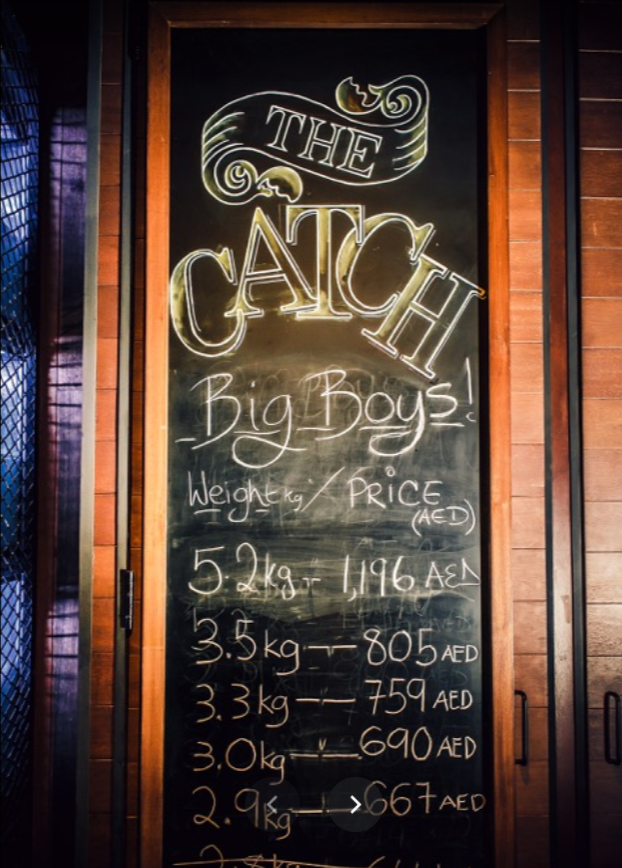 THE
CATCH
Big Boys!
Weight kg / PRiCE
(AED)
5.2kg - 1,196 AED
3.5kg — 805 AED
3.3kg — 759 AED
3.0kg — 690 AED
2.9kg — 667 AED